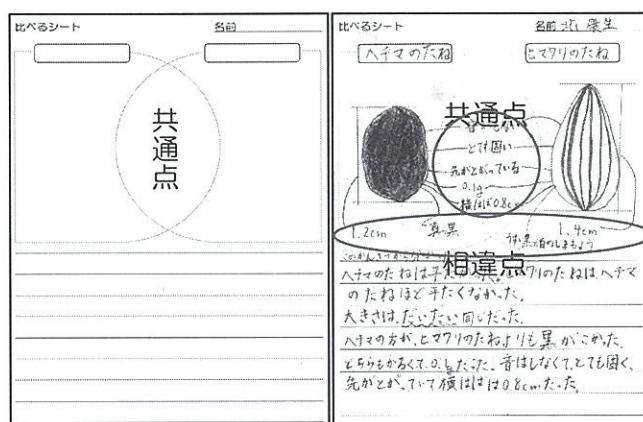 比べるシート
名前
共通点
比べるシート
名前
ヘチマのたね
ヒマワリのたね
共通点
とても固い
先がとがっている
0.1g
横はば0.8cm
1.2cm
真黒
1.4cm
うすい黒と白のしまもよう
相違点
ヘチマのたねは平た ヒマワリのたねは、ヘチマ
のたねほど平たくなかった。
大きさは、だいたい同じだった。
ヘチマの方が、ヒマワリのたねよりも黒がこかった。
どちらもかるくて、0.1gだった。音はしなくて、とても固く、
先がとがっていて横はばは0.8cmだった。